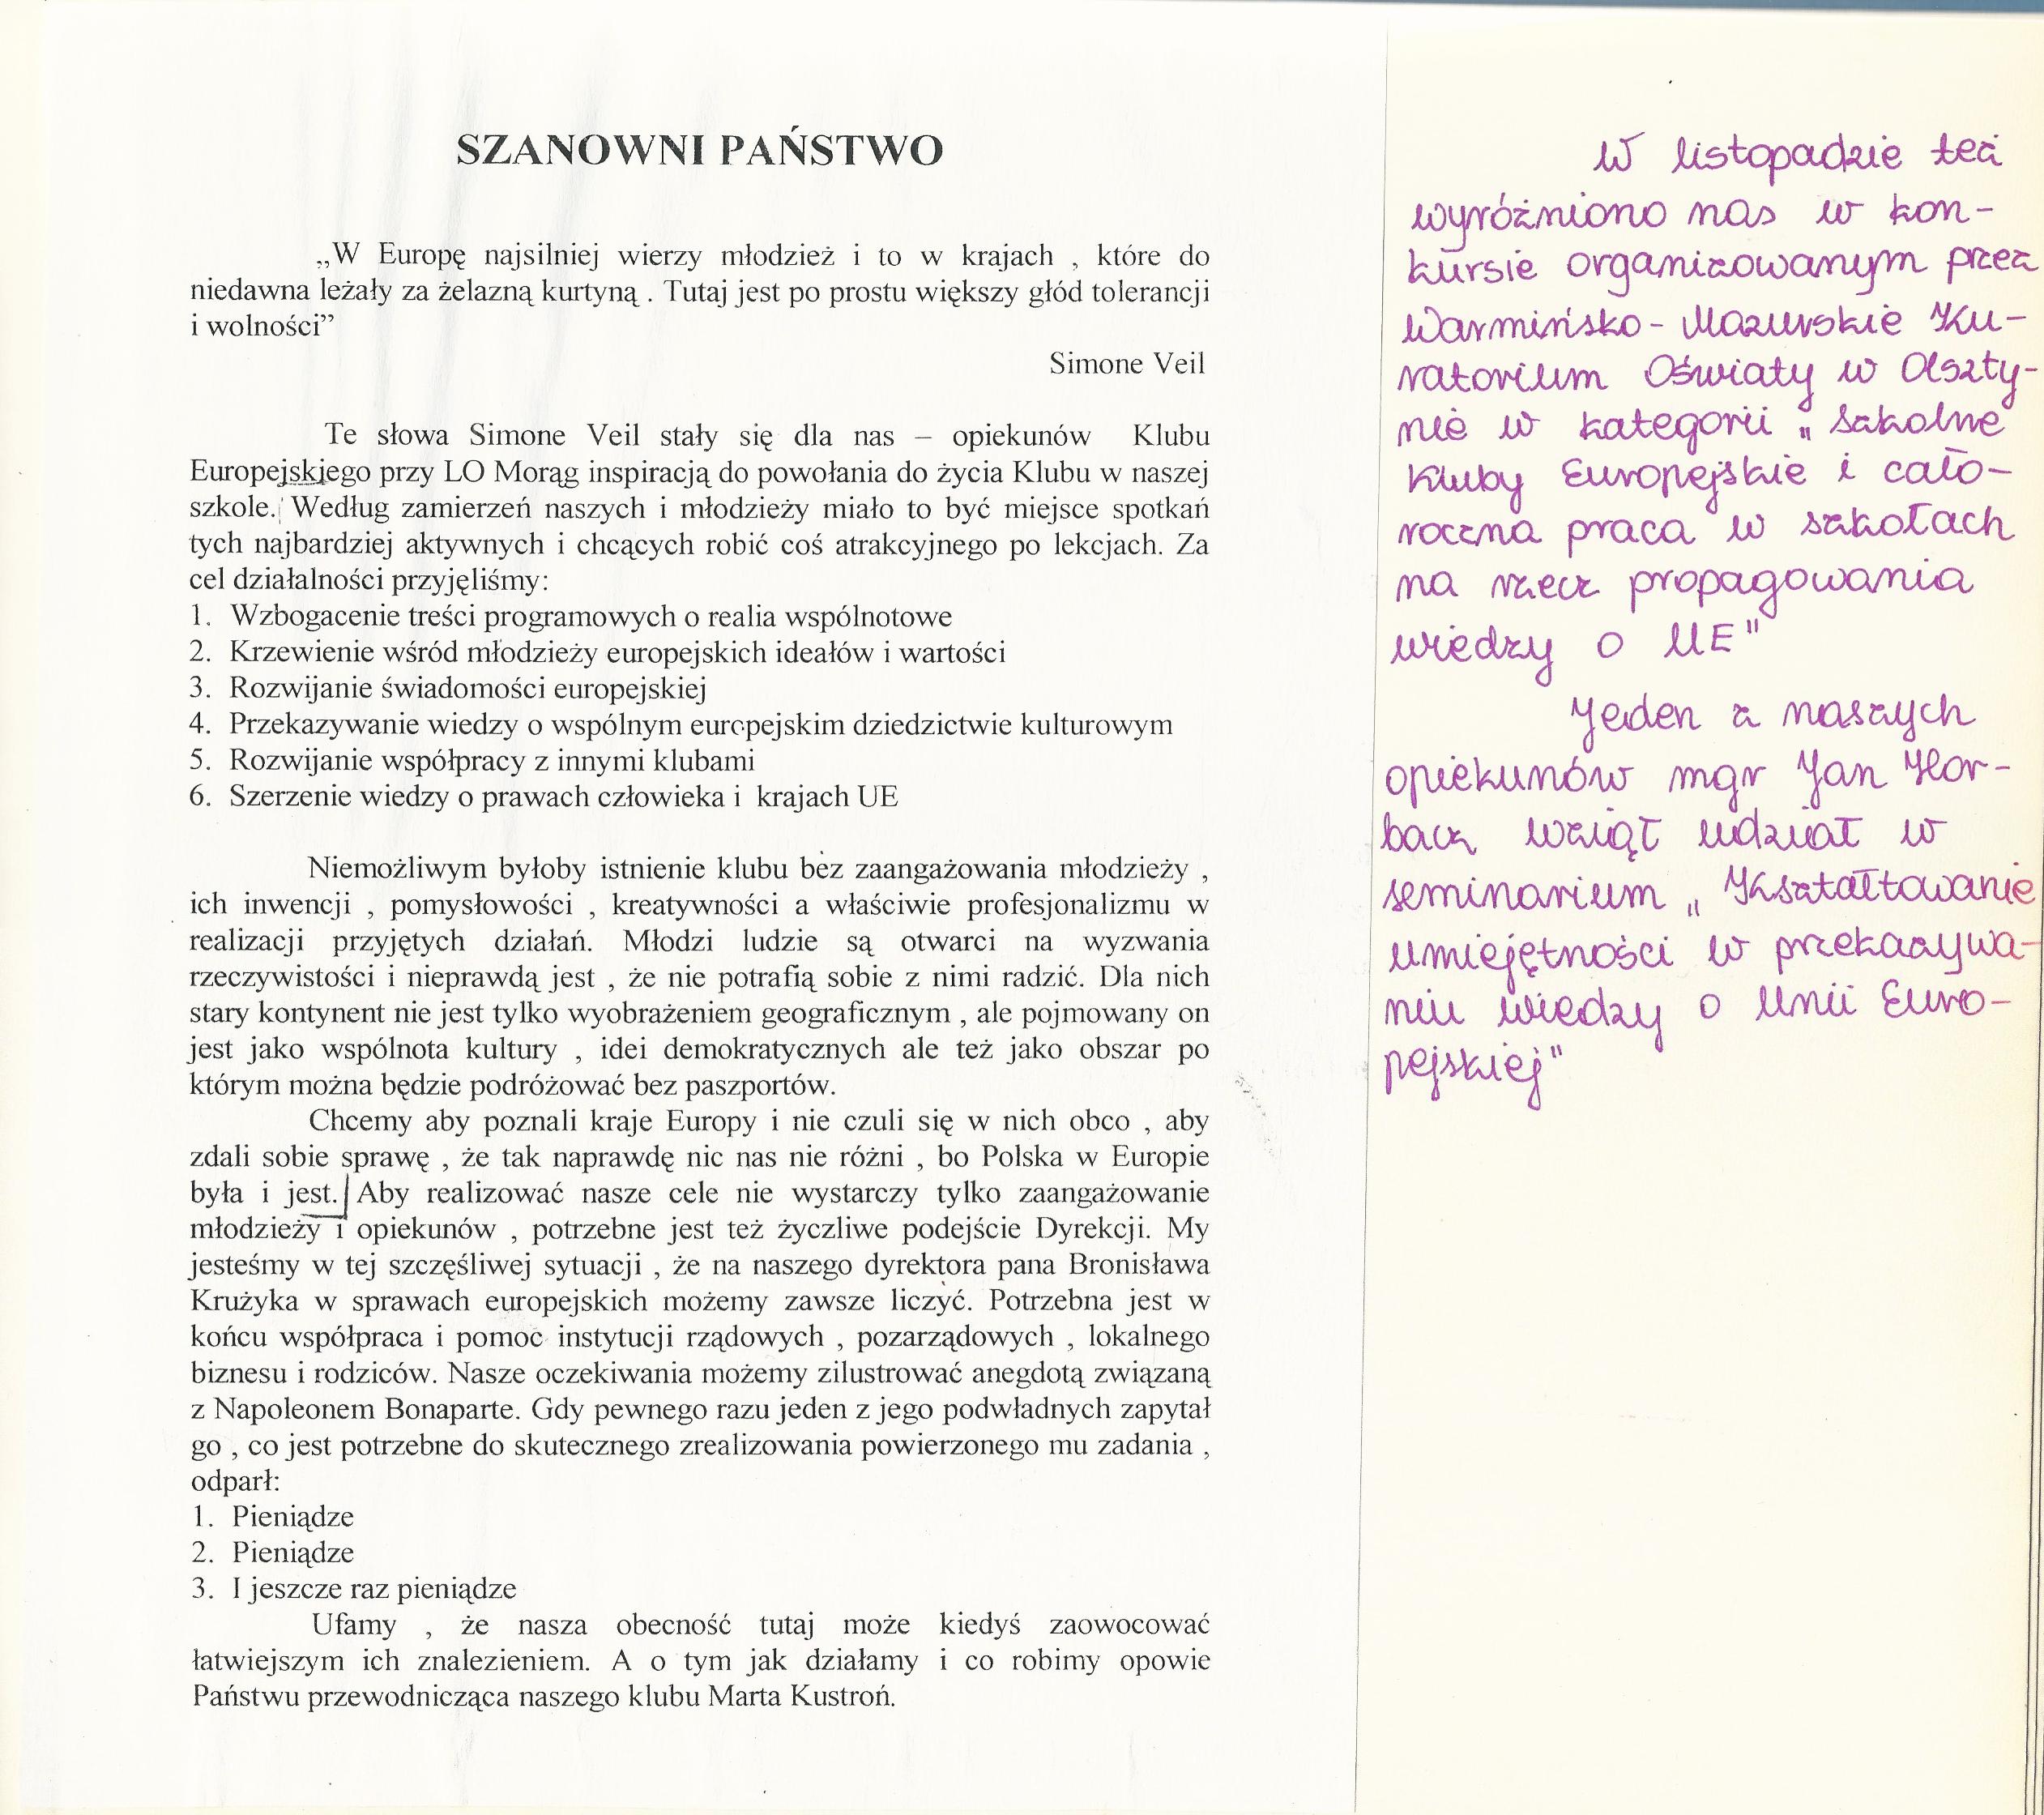 SZANOWNI PAŃSTWO
„W Europę najsilniej wierzy młodzież i to w krajach , które do
niedawna leżały za żelazną kurtyną . Tutaj jest po prostu większy głód tolerancji
i wolności”
Simone Veil
Te słowa Simone Veil stały się dla nas – opiekunów Klubu
Europejskjego przy LO Morąg inspiracją do powołania do życia Klubu w naszej
szkole. Według zamierzeń naszych i młodzieży miało to być miejsce spotkań
tych najbardziej aktywnych i chcących robić coś atrakcyjnego po lekcjach. Za
cel działalności przyjęliśmy:
1. Wzbogacenie treści programowych o realia wspólnotowe
2. Krzewienie wśród młodzieży europejskich ideałów i wartości
3. Rozwijanie świadomości europejskiej
4. Przekazywanie wiedzy o wspólnym europejskim dziedzictwie kulturowym
5. Rozwijanie współpracy z innymi klubami
6. Szerzenie wiedzy o prawach człowieka i krajach UE
Niemożliwym byłoby istnienie klubu bez zaangażowania młodzieży ,
ich inwencji , pomysłowości , kreatywności a właściwie profesjonalizmu w
realizacji przyjętych działań. Młodzi ludzie są otwarci na wyzwania
rzeczywistości i nieprawdą jest , że nie potrafią sobie z nimi radzić. Dla nich
stary kontynent nie jest tylko wyobrażeniem geograficznym , ale pojmowany on
jest jako wspólnota kultury , idei demokratycznych ale też jako obszar po
którym można będzie podróżować bez paszportów.
Chcemy aby poznali kraje Europy i nie czuli się w nich obco , aby
zdali sobie sprawę , że tak naprawdę nic nas nie różni , bo Polska w Europie
była i jest. Aby realizować nasze cele nie wystarczy tylko zaangażowanie
młodzieży i opiekunów , potrzebne jest też życzliwe podejście Dyrekcji. My
jesteśmy w tej szczęśliwej sytuacji , że na naszego dyrektora pana Bronisława
Krużyka w sprawach europejskich możemy zawsze liczyć. Potrzebna jest w
końcu współpraca i pomoc instytucji rządowych , pozarządowych , lokalnego
biznesu i rodziców. Nasze oczekiwania możemy zilustrować anegdotą związaną
z Napoleonem Bonaparte. Gdy pewnego razu jeden z jego podwładnych zapytał
go , co jest potrzebne do skutecznego zrealizowania powierzonego mu zadania ,
odparł:
1. Pieniądze
2. Pieniądze
3. I jeszcze raz pieniądze
Ufamy , że nasza obecność tutaj może kiedyś zaowocować
łatwiejszym ich znalezieniem. A o tym jak działamy i co robimy opowie
Państwu przewodnicząca naszego klubu Marta Kustroń.
W listopadzie też
wyróżniono nas w kon-
kursie organizowanym przez
Warmińsko-Mazurskie Ku-
ratorium Oświaty w Olszty-
nie w kategorii „Szkolne
Kluby Europejskie i cało-
roczna praca w szkołach
na rzecz propagowania
wiedzy o UE"
Jeden z naszych
opiekunów mgr Jan Hor-
bacz wziął udział w
seminarium „Kształtowanie
umiejętności w przekazywa-
niu wiedzy o Unii Euro-
pejskiej"